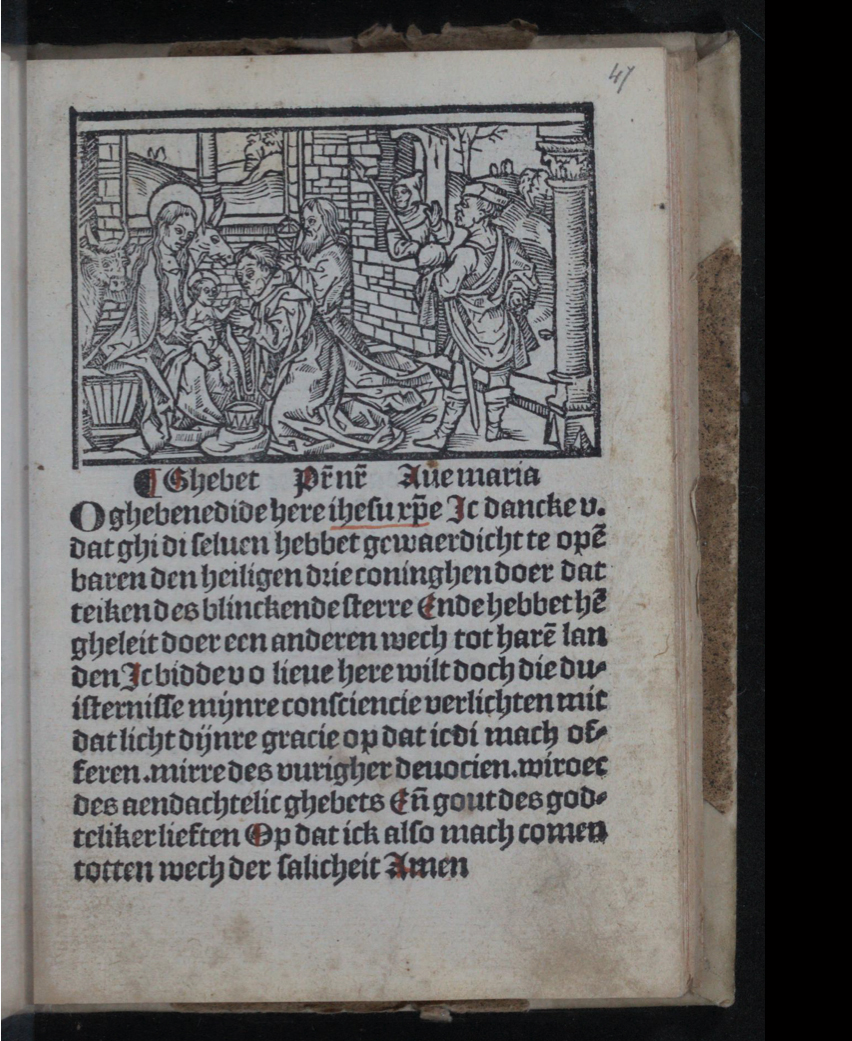 47
¶ Ghebet Pr̃nr̃ Aue maria
O ghebenedide here ihesu xp̃e Ic dancke v.
dat ghi di seluen hebbet gewaerdicht te opẽ
baren den heiligen drie coninghen doer dat
teiken des blinckende sterre Ende hebbet hẽ
gheleit doer een anderen wech tot harẽ lan
den Ic bidde v o lieue here wilt doch die du⸗
isternisse mijnre consciencie verlichten mit
dat licht dijnre gracie op dat ic di mach of⸗
feren .mirre des vurigher deuocien. wiroec
des aendachtelic ghebets Eñ gout des god⸗
teliker lieften Op dat ick also mach comen
totten wech der salicheit Amen